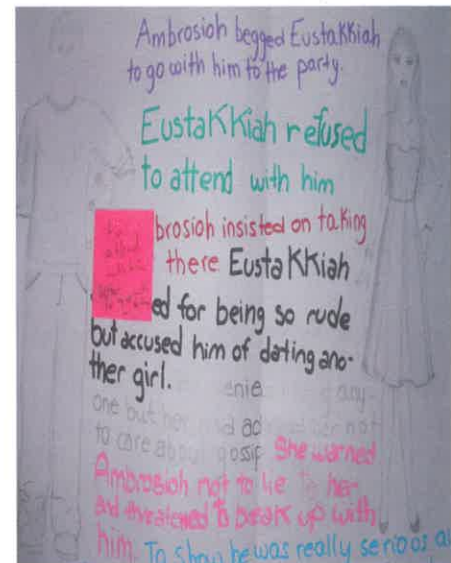 Ambrosioh begged EustaKKiah
to go with him to the party.
EustaKKiah refused
to attend with him
brosioh insisted on taking
there EustaKKiah
ed for being so rude
but accused him of dating ano-
ther girl.
enie any-
one but her not
to care about gossip She warned
Ambrosioh not to lie to her
and threatened to break up with
him. To show he was really serious a